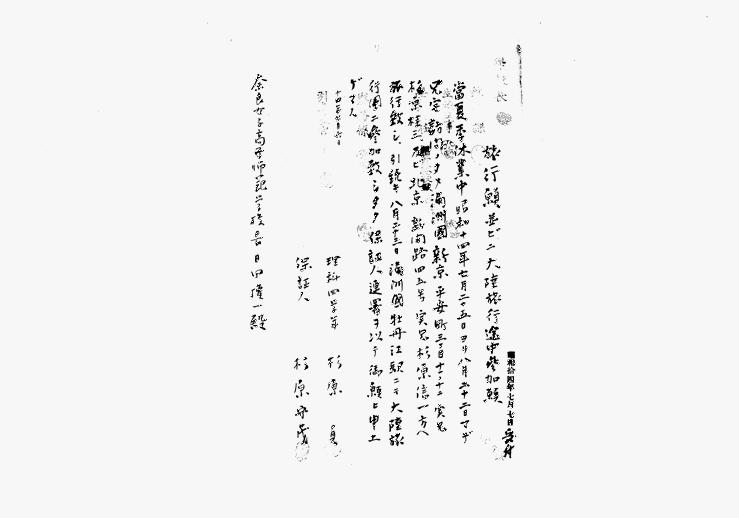 昭和拾四年七月七日
旅行願並ビニ大陸旅行途中参加願
當夏季休業中昭和十四年七月二十五日ヨリ八月二十二日マデ
兄宅訪問ノタメ満洲國新京平安町三丁目十ノ十二実兄
杉原桂三及ビ北京新開路四五号実兄杉原信一方へ
旅行致シ、引続キ八月二十三日満洲國牡丹江駅ニテ大陸旅
行團ニ参加致シタク保証人連署ヲ以テ御願ヒ申上
ゲマス
十四年七月六日
理科四学年 杉原
保証人 杉原
奈良女子高等師範学校長 日田権一殿